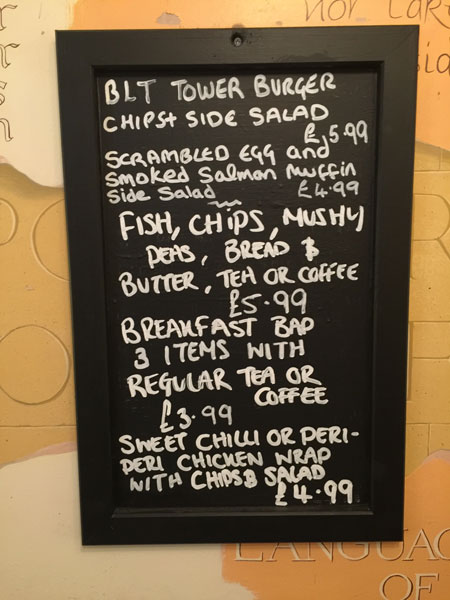 BLT TOWER BURGER
CHIPS+ SIDE SALAD
£5.99
SCRAMBLED EGG and
Smoked Salmon Muffin
Side Salad £4.99
FISH, CHIPS, MUSHY
PEAS, BREAD &
BUTTER, TEA OR COFFEE
£5.99
BREAKFAST BAP
3 ITEMS WITH
REGULAR TEA OR
COFFEE
£3.99
SWEET CHILLI OR PERI-
PERI CHICKEN WRAP
WITH CHIPS & SALAD
£4.99
LANGUAG
OF